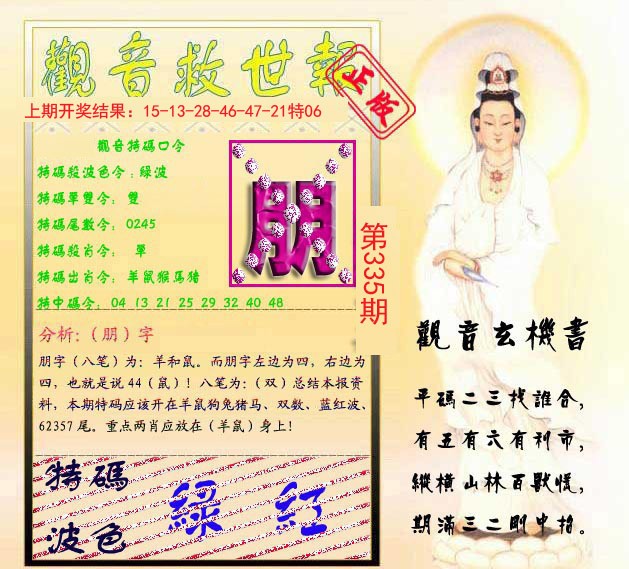 觀音救世報
正版
上期开奖结果：15-13-28-46-47-21特06
觀音特碼口令
特碼殺波色令：绿波
特碼單雙令： 雙
特碼尾數令： 0245
特碼殺肖令： 單
特碼出肖令：羊鼠猴馬猪
特中碼令： 04 13 21 25 29 32 40 48
朋
第335期
分析：（朋）字
朋字（八笔）为：羊和鼠。而朋字左边为四，右边为
四，也就是说 44（鼠）！八笔为：（双）总结本报资
料，本期特码应该开在羊鼠狗兔猪马、双数、蓝红波、
62357 尾。重点两肖应放在（羊鼠）身上！
特碼
波色
綠 红
觀音玄機書
平碼二三找誰合，
有五有六有利市，
縱橫山林百獸慌，
期滿三二剛中指。